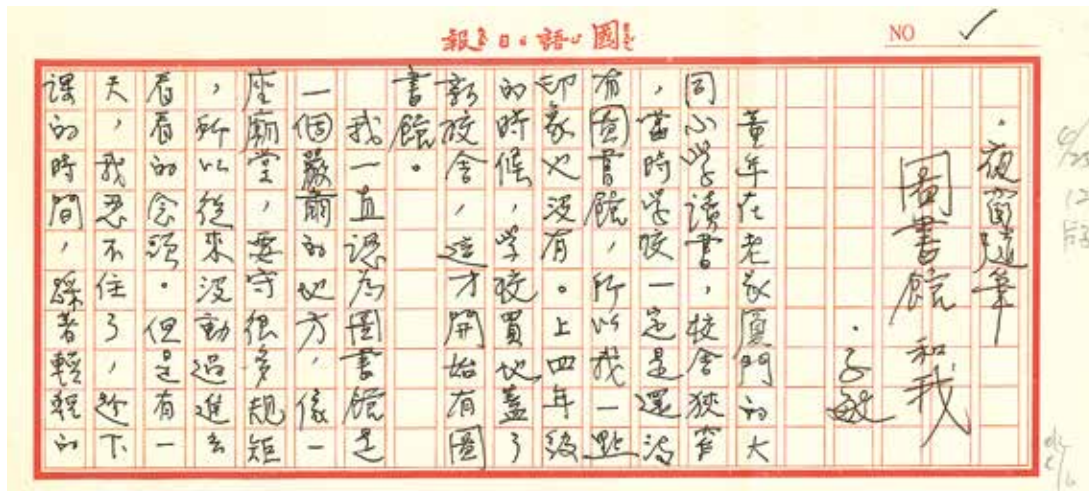 國語日報
NO ✓
・夜窗隨筆
圖書館和我
・子敏
童年在老家廈門的大
同小學讀書，校舍狹窄
，當時學校一定是還沒
有圖書館，所以我一點
印象也沒有。上四年級
的時候，學校買地蓋了
新校舍，這才開始有圖
書館。
我一直認為圖書館是
一個嚴肅的地方，像一
座廟堂，要守很多規矩
，所以從來沒動過進去
看看的念頭。但是有一
天，我忍不住了，趁下
課的時間，踩著輕輕的